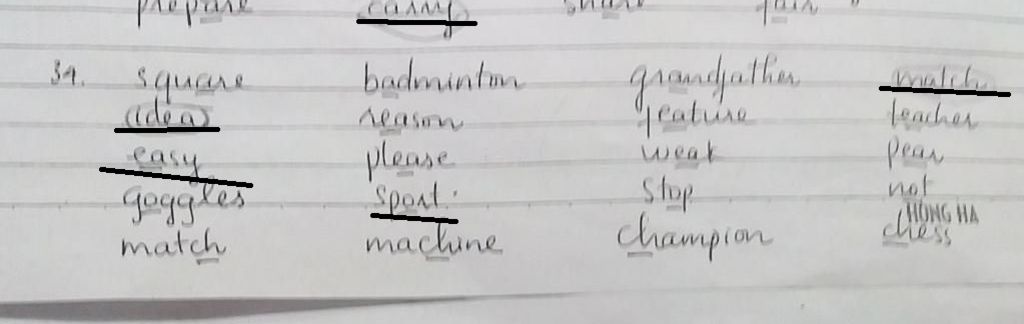 prepare carry share fair
39. square badminton grandfather match
idea reason feature teacher
easy please weak pear
goggles sport. stop not
HONG HA
match machine champion chess